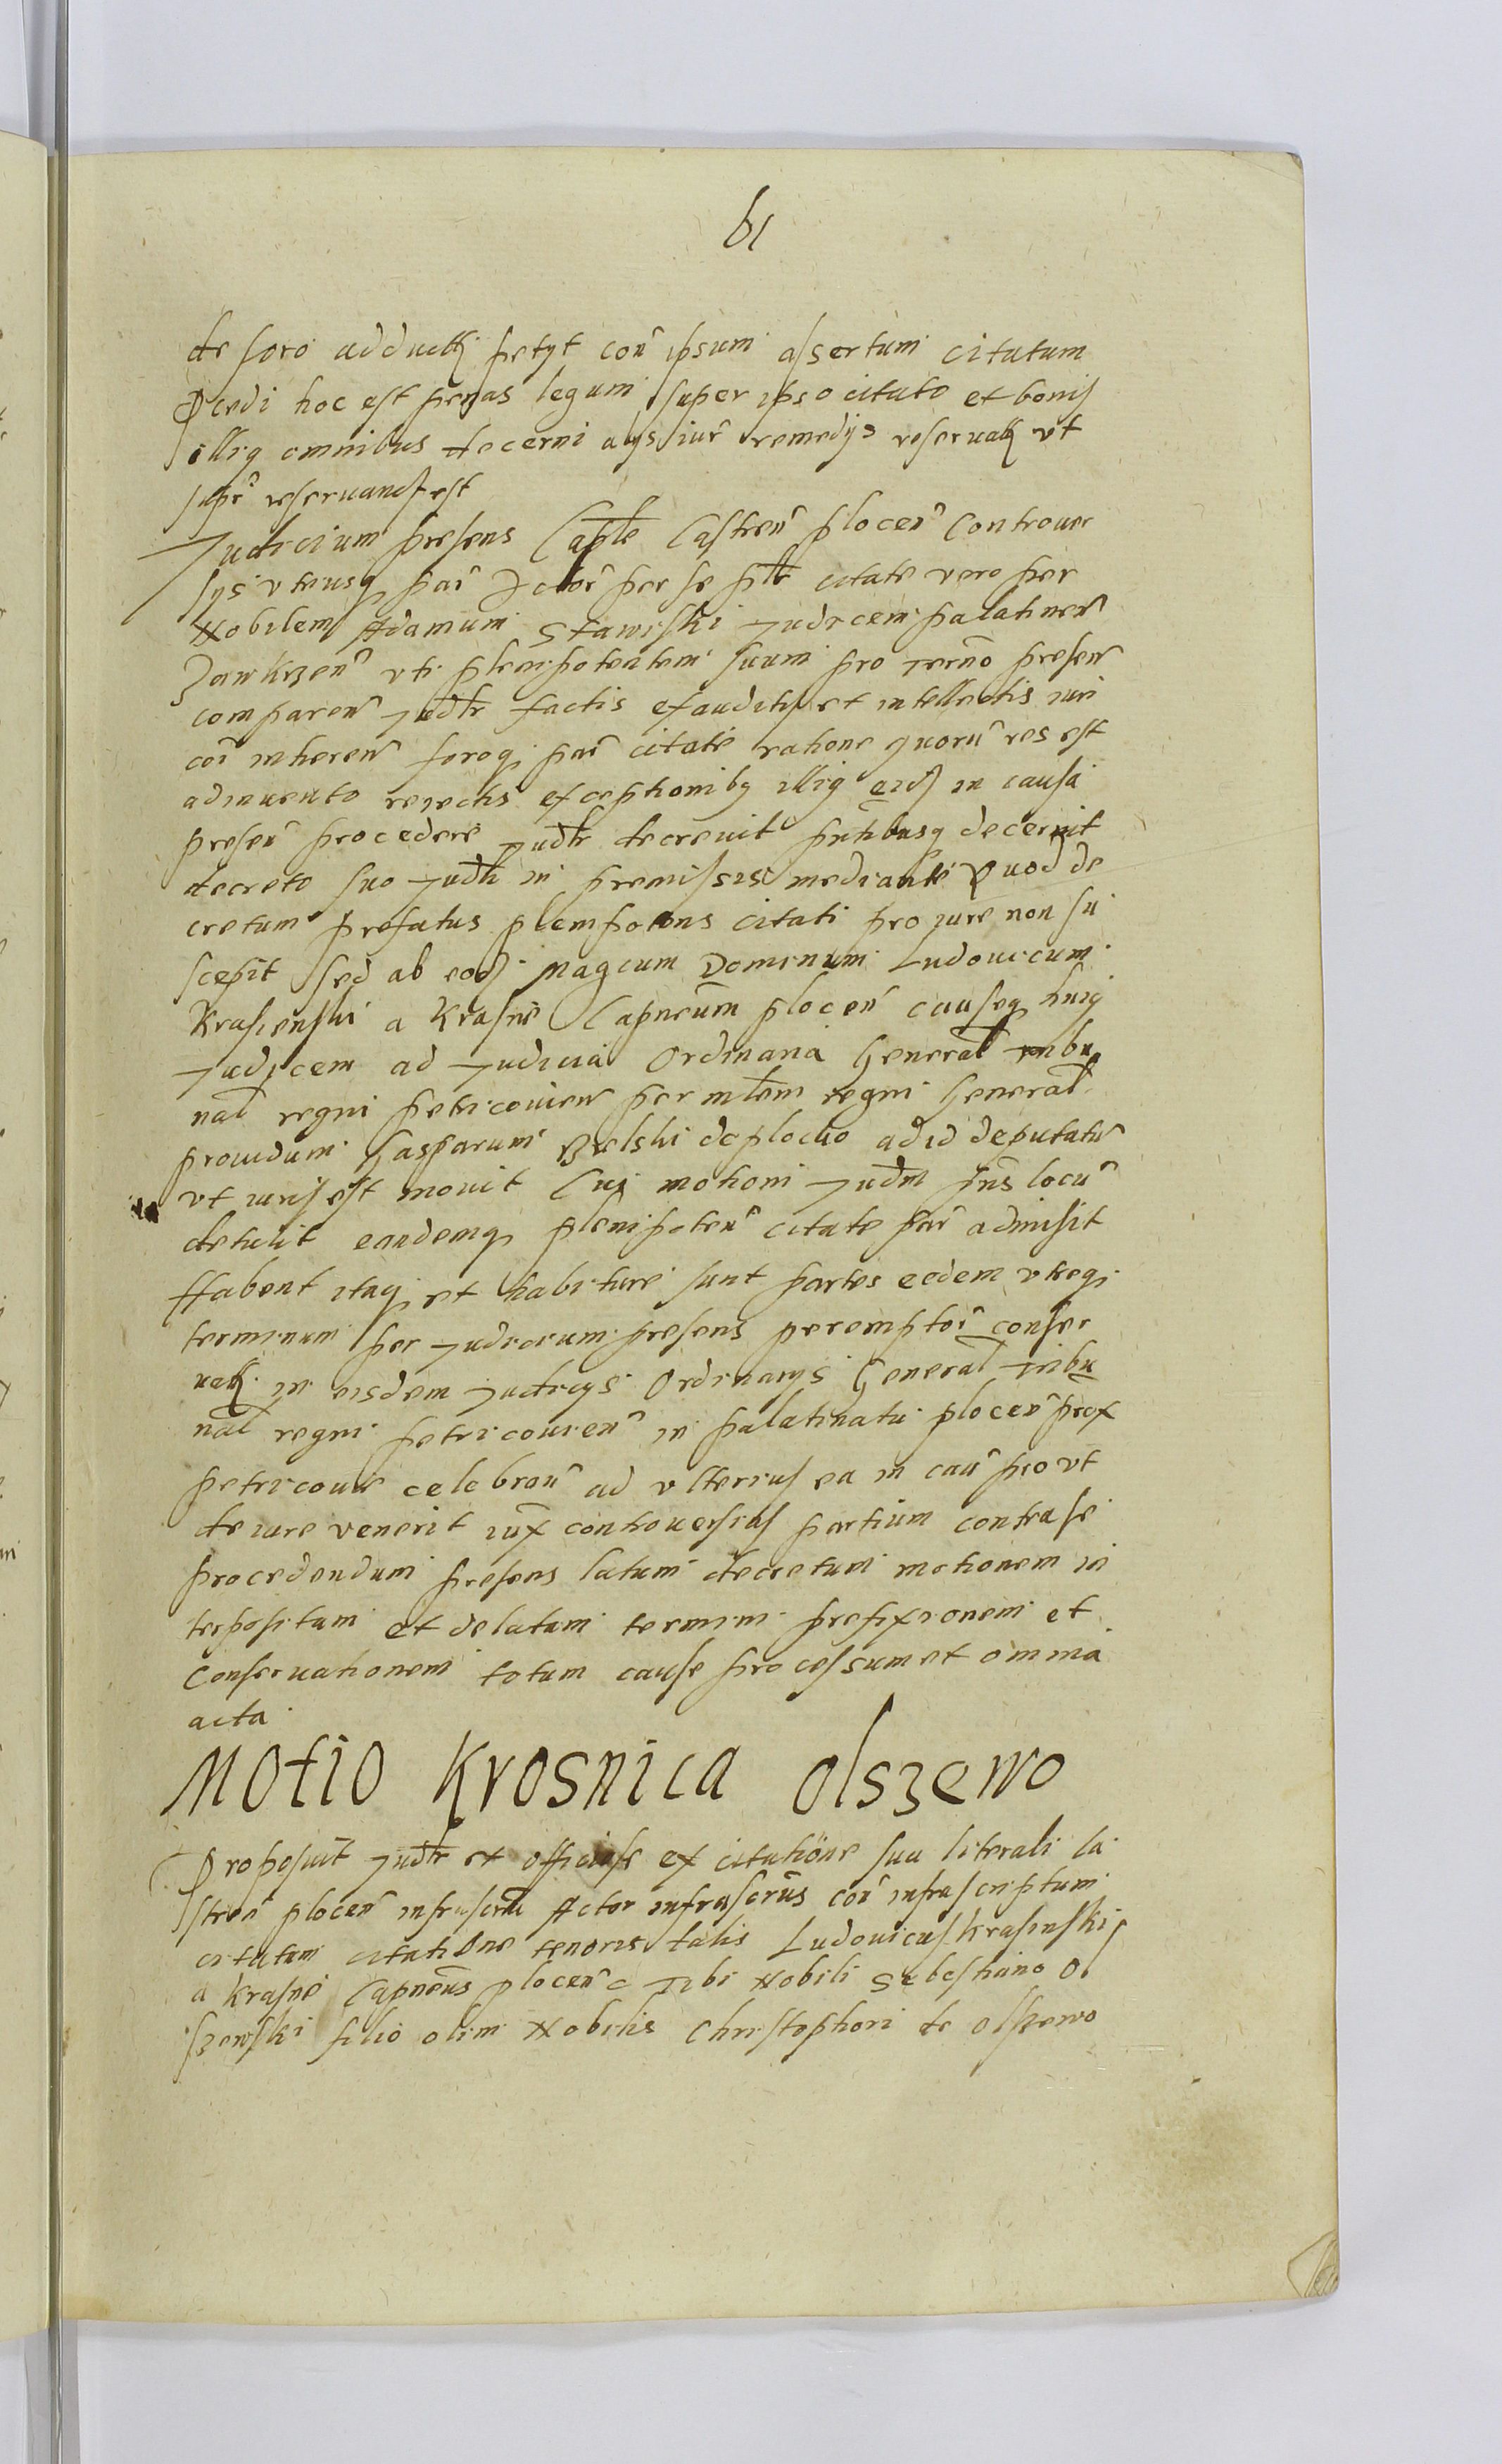 61
de foro adductis petyt con̄ ipsum assertum citatum
procedi hoc est penas legum super ipso citato et bonis
illiq omnibus decerni alys iur̄ remedys reseruatis vt
supr̄ reseruand est
Judicium presens Captle Castren̄ plocen̄ Controuer
sys vtriusq par̄ Actor̄ per se pltr citate vero per
Nobilem Adamum Stawiski Judicem palatinen̄
Zawkrzen̄ vti plenipotentem suum pro termo presen̄
comparen̄ Judtr factis exauditis et intellectis iuri
coi inheren̄ foroq par̄ citate ratione quoru res est
adinuento reiectis exceptionibq illiq eids in causa
presen̄ procedere Judtr decreuit pntibusq decernit
decreto suo Judli in premissis mediante Quod de
cretum prefatus plenipotens citati pro iure non su
scepit sed ab eods Magcum Dominum Ludouicum
Krasienski a Krasne Capneum plocen̄ causeq huiq
Judicem ad Judicia Ordinaria General tribu
nal regni petricouien̄ per mlem regni General
prouidum Gasparum Bielski de plocko ad id deputatu
vt iuris est mouit Cui motioni Judm pns locu
detulit eandemq plenipoten̄ citate par̄ admisit
Habent itaq et habiture sunt partes eedem vtreq
terminum per Judicium presens peremptor̄ conser
uatj in eisdem Judicys Ordinarys General tribu
nal regni petricouien̄ in palatinatu plocen̄ prox
petricouie celebran̄ ad vlterius ea in cau̅ prout
de iure venerit iux controuersias partium contra se
procedendum presens latum decretum motionem in
terpositam et delatam termini prefixionem et
conseruationem totum cause processum et omnia
acta
Motio Krosnica Olszewo
Proposuit Judtr et officiose ex citatione sua literali ca
stren̄ plocen̄ infrascrta Actor infrascrius con̄ infrascriptum
citatum citatione tenoris talis Ludouicus Krasinski
a Krasne Capneus plocen̄ Tibi Nobili Sebestiano Ol
szewski filio olim Nobilis Christophori de Olszewo